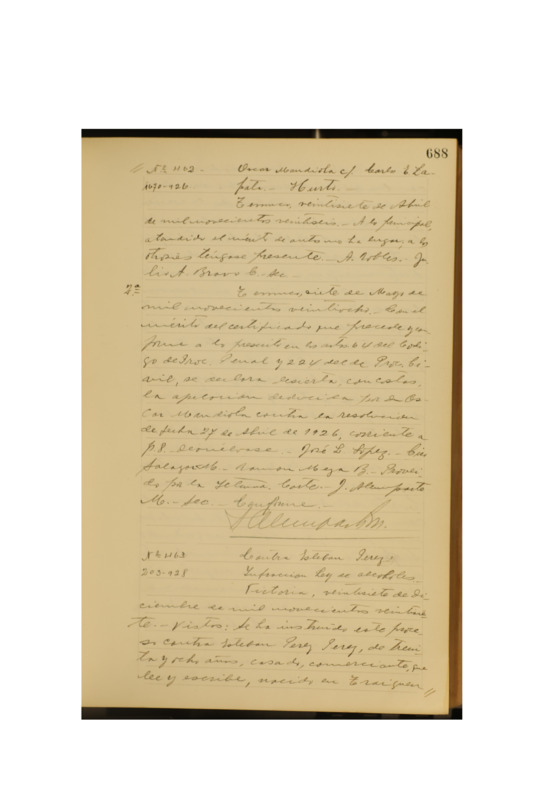 688
// No 1162 - Oscar Mandiola c/ Carlos 2 La-
1670-926 pata. - Hurto. -
Temuco, veintisiete de Abril
de mil novecientos veintiseis. - A lo principal,
atendido el mérito de autos no ha lugar; a los
otrosíes téngase presente. - A. Robles. - Ju-
lio A. Bravo C. Sec
2a Temuco, siete de Mayo de
mil novecientos veintiocho. - Con el
mérito del certificado que precede y con-
forme a lo prescrito en los artos 64 del Códi-
go de Proc. Penal y 224 del de Proc. Ci-
vil, se declara desierta, con costas,
la apelacion deducida por don Os-
car Mandiola contra la resolucion
de fecha 27 de Abril de 1926, corriente a
f 8. Devuélvase. - José L. López. -
Salazar - Ramon Meza B. - Provei-
do por la Iltma. Corte. - J. Alemparte
M. - Sec. - Conforme. -
J Alemparte M.
No 1163 Contra Esteban Perez
203-938 Infraccion ley de alcoholes.
Victoria, veintisiete de Di-
ciembre de mil novecientos veintisie-
te. - Vistos: Se ha instruido este proce-
so contra Esteban Perez Perez, de trein-
ta y ocho años, casado, comerciante, que
lee y escribe, nacido en Traiguen //